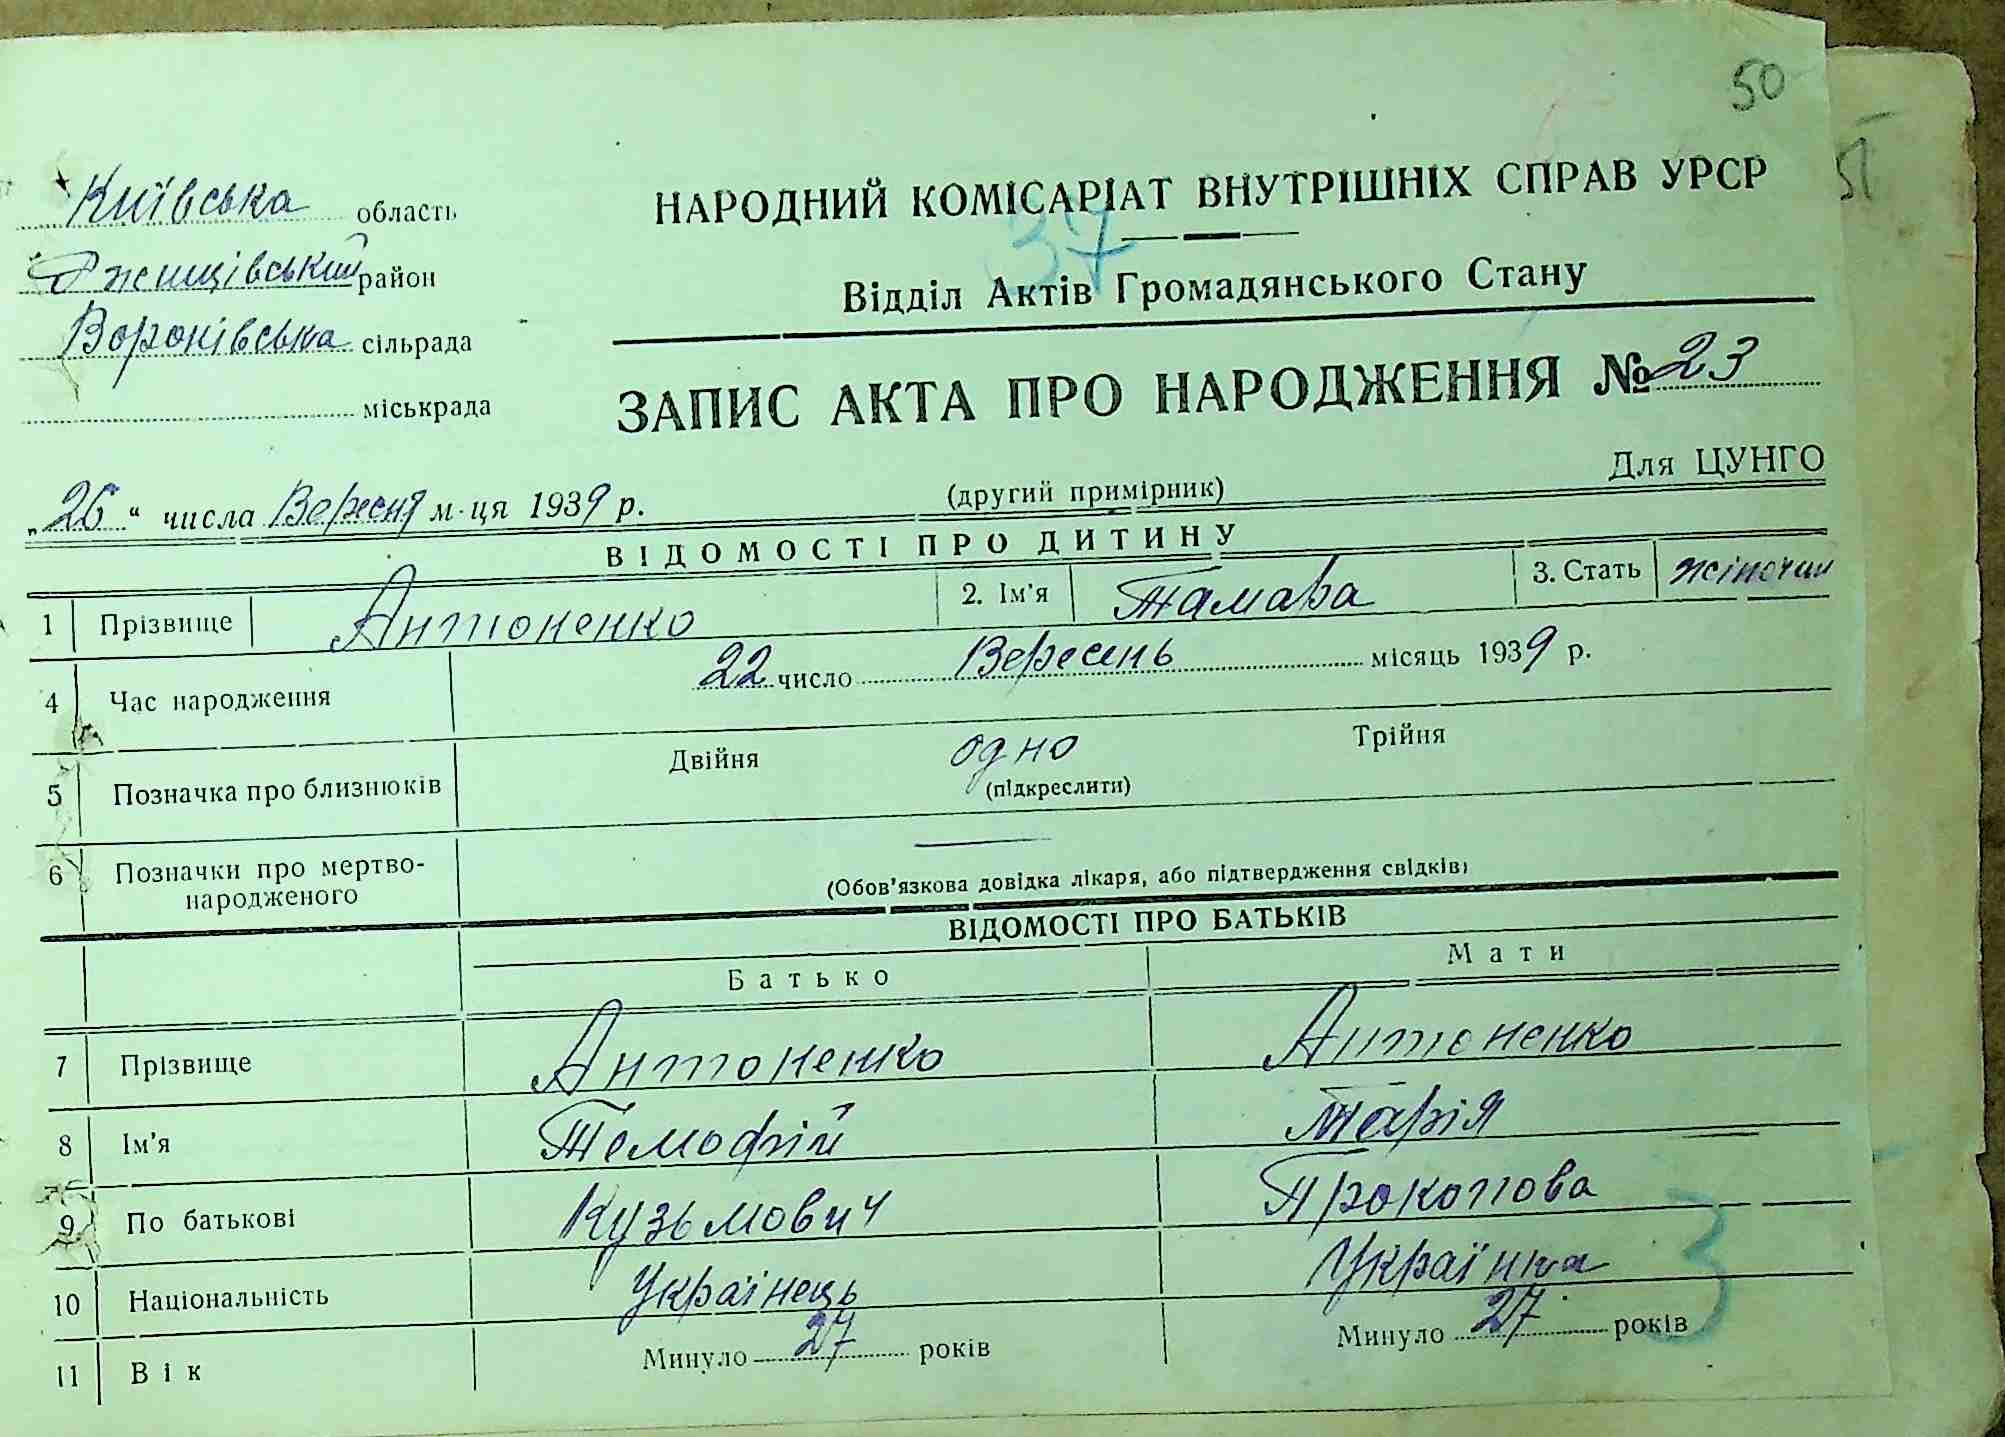 50
51
Київська область
Ржищівський район
Воронівська сільрада
міськрада
НАРОДНИЙ КОМІСАРІАТ ВНУТРІШНІХ СПРАВ УРСР
37
Відділ Актів Громадянського Стану
ЗАПИС АКТА ПРО НАРОДЖЕННЯ № 23
Для ЦУНГО
„26“ числа Вересня м-ця 1939 р.
(другий примірник)
ВІДОМОСТІ ПРО ДИТИНУ
1 Прізвище Антоненко 2. Ім'я Тамара 3. Стать жіночий
4 Час народження 22 число Вересень місяць 1939 р.
5 Позначка про близнюків Двійня одно Трійня
(підкреслити)
6 Позначки про мертво-
народженого
(Обов'язкова довідка лікаря, або підтвердження свідків)
ВІДОМОСТІ ПРО БАТЬКІВ
Батько Мати
7 Прізвище Антоненко Антоненко
8 Ім'я Темофій Марія
9 По батькові Кузьмович Прокопова
10 Національність Українець Українка
3
11 Вік Минуло 27 років Минуло 27 років